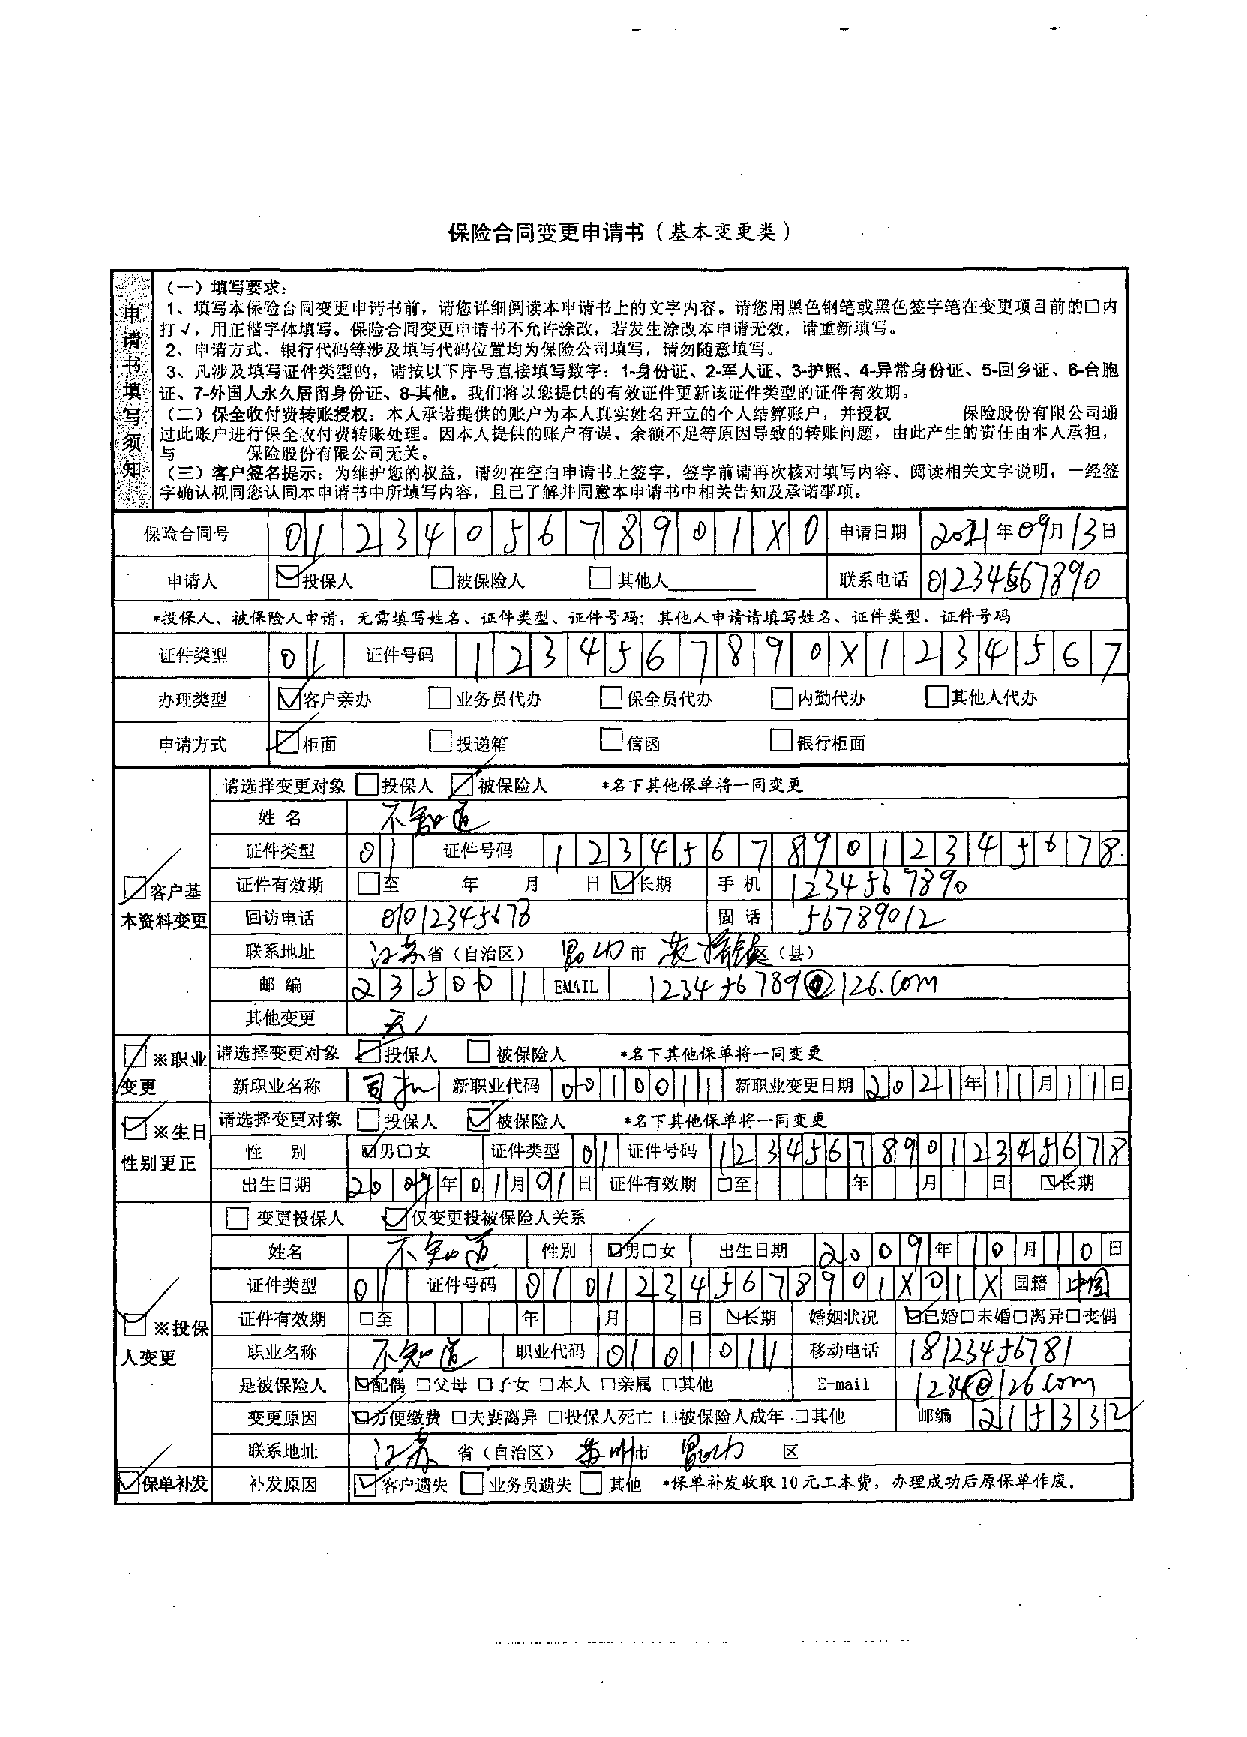 保险合同变更申请书（基本变更类）
申请书填写须知
（一）填写要求：
1、填写本保险合同变更申请书前，请您详细阅读本申请书上的文字内容。请您用黑色钢笔或黑色签字笔在变更项目前的□内
打√，用正楷字体填写。保险合同变更申请书不允许涂改，若发生涂改本申请无效，请重新填写。
2、申请方式、银行代码等涉及填写代码位置均为保险公司填写，请勿随意填写。
3、凡涉及填写证件类型的，请按以下序号直接填写数字：1-身份证、2-军人证、3-护照、4-异常身份证、5-回乡证、6-台胞
证、7-外国人永久居留身份证、8-其他。我们将以您提供的有效证件更新该证件类型的证件有效期。
（二）保全收付费转账授权：本人承诺提供的账户为本人真实姓名开立的个人结算账户，并授权 保险股份有限公司通
过此账户进行保全收付费转账处理。因本人提供的账户有误、余额不足等原因导致的转账问题，由此产生的责任由本人承担，
与 保险股份有限公司无关。
（三）客户签名提示：为维护您的权益，请勿在空白申请书上签字，签字前请再次核对填写内容、阅读相关文字说明，一经签
字确认视同您认同本申请书中所填写内容，且已了解并同意本申请书中相关告知及承诺事项。
保险合同号 0123405678901X0 申请日期 2021年09月13日
申请人 ☑投保人 □被保险人 □其他人 联系电话 01234567890
*投保人、被保险人申请，无需填写姓名、证件类型、证件号码；其他人申请请填写姓名、证件类型、证件号码
证件类型 01 证件号码 1234567890X1234567
办理类型 ☑客户亲办 □业务员代办 □保全员代办 □内勤代办 □其他人代办
申请方式 ☑柜面 □投递箱 □信函 □银行柜面
☑客户基本资料变更
请选择变更对象 □投保人 ☑被保险人 *名下其他保单将一同变更
姓名 不知道
证件类型 01 证件号码 123456789012345678
证件有效期 □至 年 月 日 ☑长期 手机 1234567890
回访电话 01012345678 固话 56789012
联系地址 江苏省（自治区） 市 区（县）
邮编 235001 EMAIL 123456789@126.com
其他变更 无
☑※职业变更
请选择变更对象 ☑投保人 □被保险人 *名下其他保单将一同变更
新职业名称 司机 新职业代码 0010011 新职业变更日期 2021年11月11日
☑※生日性别更正
请选择变更对象 □投保人 ☑被保险人 *名下其他保单将一同变更
性别 ☑男□女 证件类型 01 证件号码 123456789012345678
出生日期 2009年01月01日 证件有效期 □至 年 月 日 ☑长期
☑※投保人变更
□变更投保人 ☑仅变更投被保险人关系
姓名 不知道 性别 ☑男□女 出生日期 2009年10月10日
证件类型 01 证件号码 01012345678901X01X 国籍 中国
证件有效期 □至 年 月 日 ☑长期 婚姻状况 ☑已婚□未婚□离异□丧偶
职业名称 不知道 职业代码 0101011 移动电话 18123456781
是被保险人 ☑配偶 □父母 □子女 □本人 □亲属 □其他 E-mail 1234@126.com
变更原因 ☑方便缴费 □夫妻离异 □投保人死亡 □被保险人成年 □其他 邮编 215332
联系地址 江苏 省（自治区） 苏州市 区
☑保单补发 补发原因 ☑客户遗失 □业务员遗失 □其他 *保单补发收取10元工本费，办理成功后原保单作废。